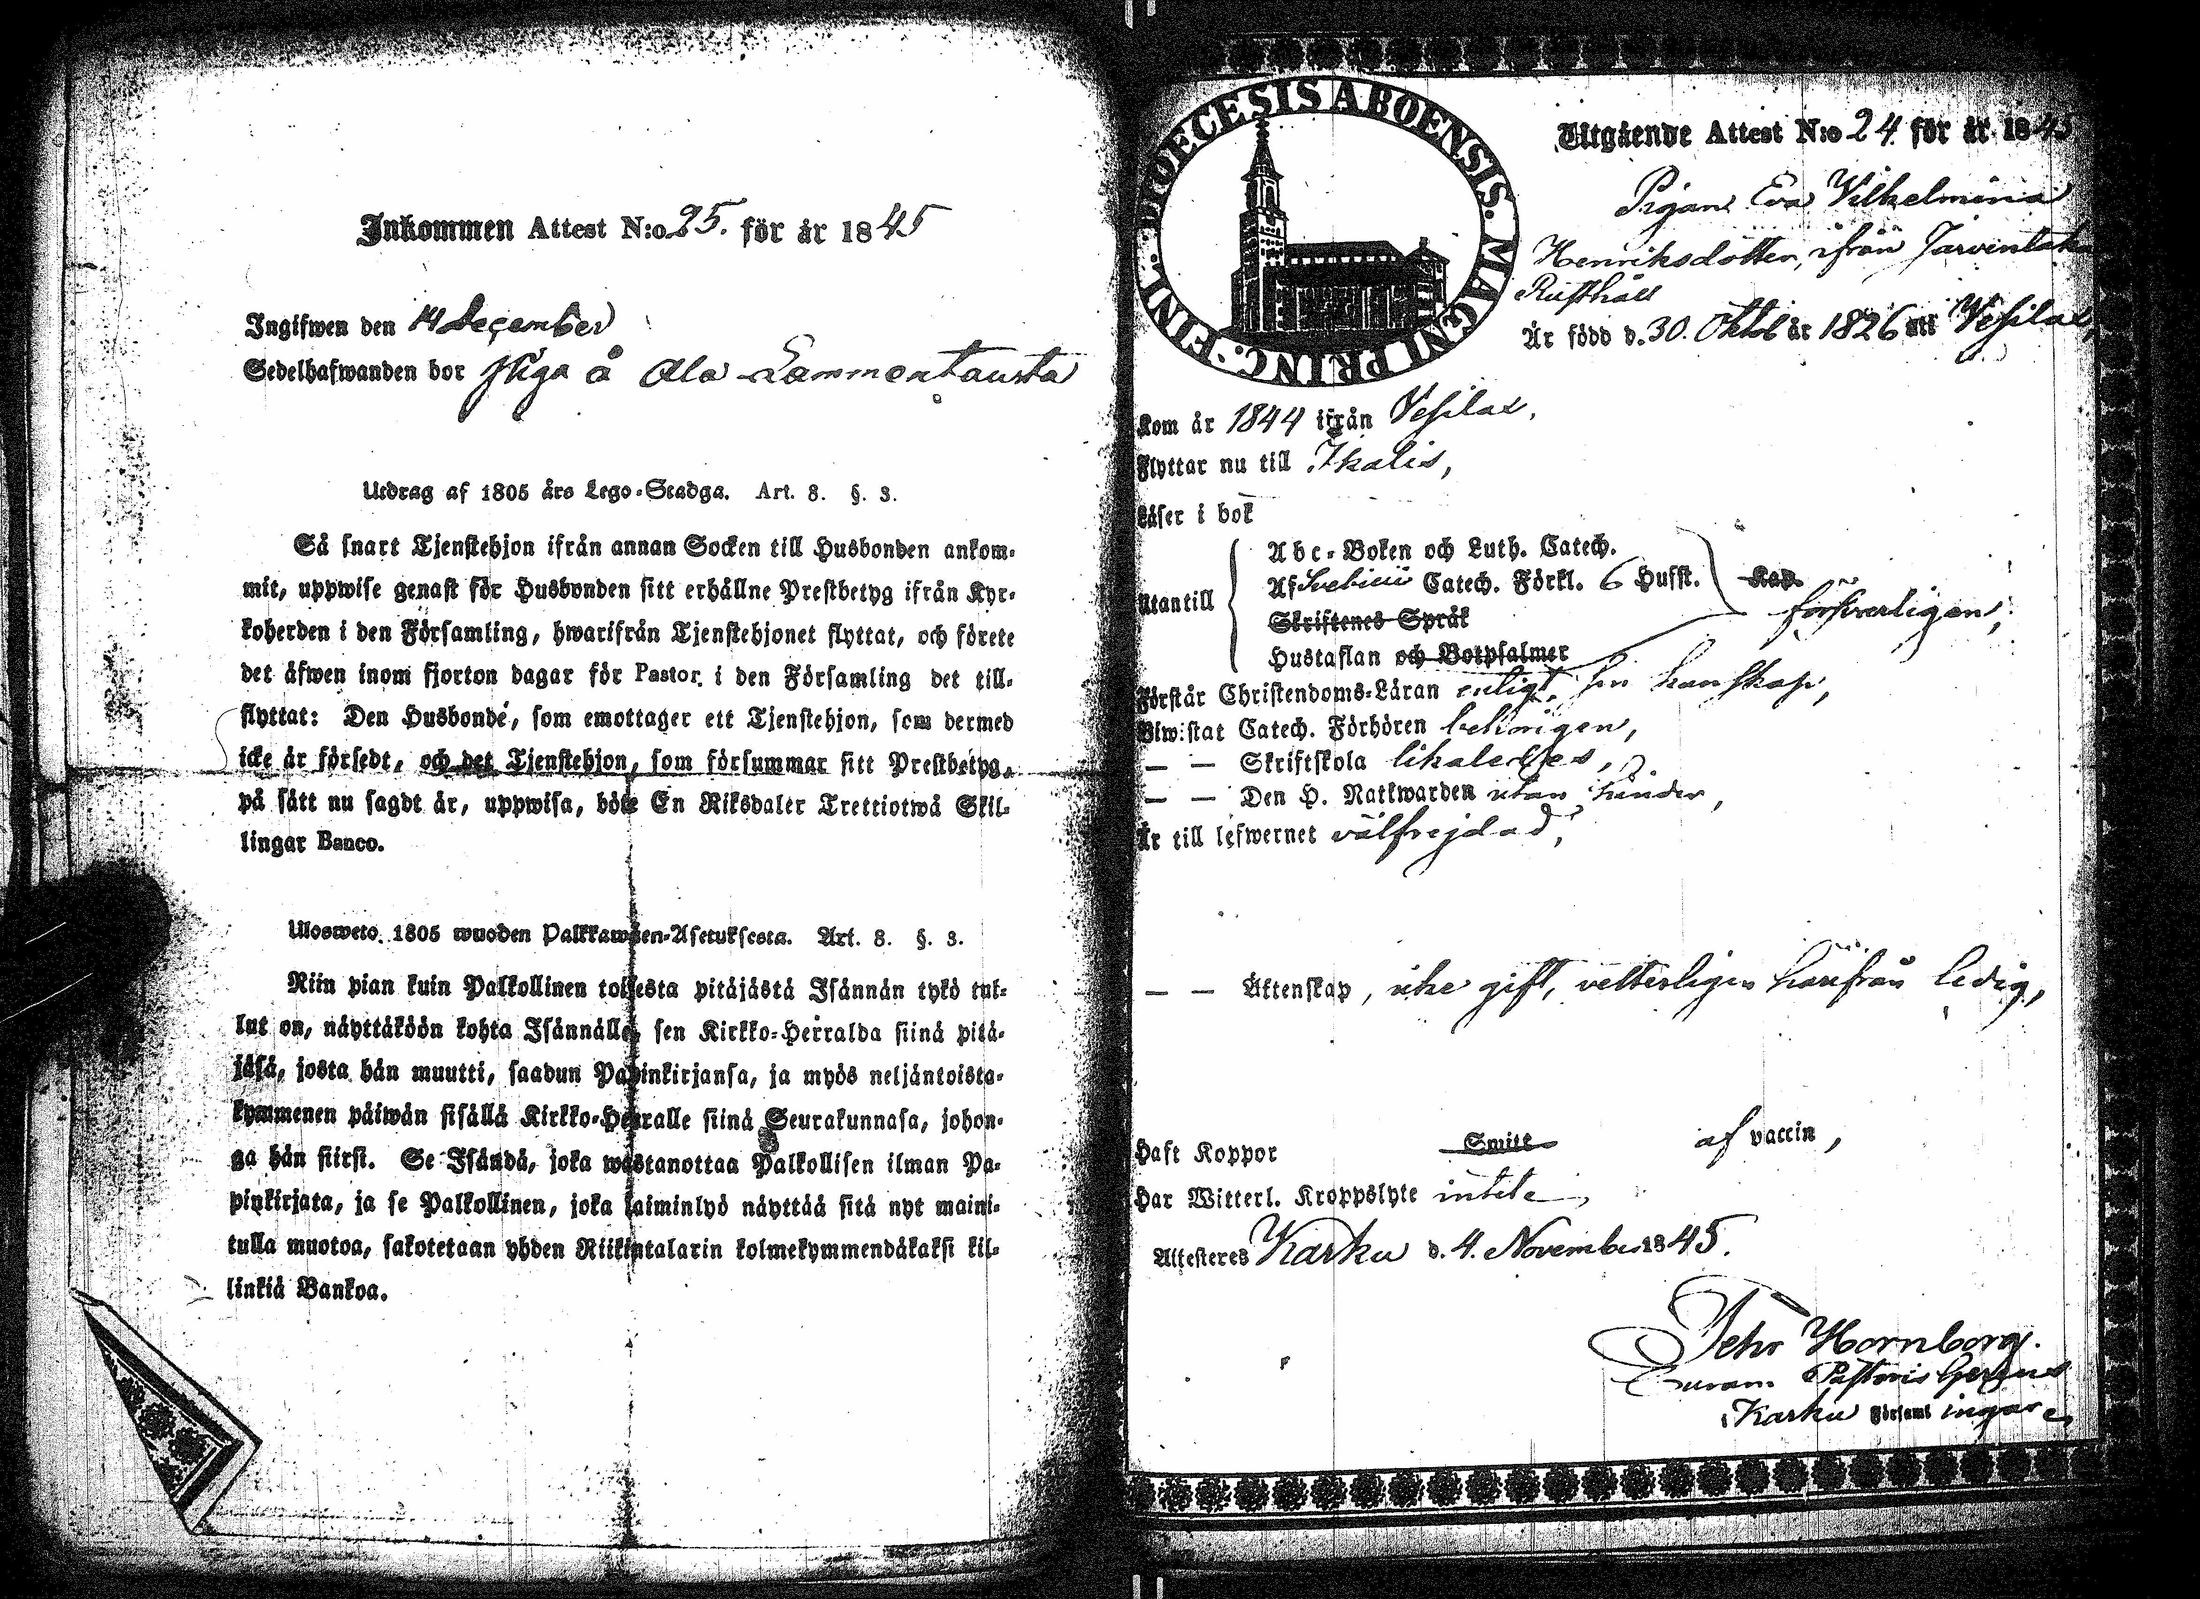 Inkommen Attest N:o 25. för år 1845
Ingifwen den 14 December
Sedelhafwanden bor Piga å Ala Lammentausta
Utdrag af 1805 års Lego-Stadga. Art. 8. §. 3.
Så snart Tjenstehjon ifrån annan Socken till Husbonden ankom-
mit, uppwise genast för Husbonden sitt erhållne Prestbetyg ifrån Kyr-
koherden i den Församling, hwarifrån Tjenstehjonet flyttat, och förete
det äfwen inom fjorton dagar för Pastor i den Församling det till-
flyttat: Den Husbonde, som emottager ett Tjenstehjon, som dermed
icke är försedt, och det Tjenstehjon, som försummar sitt Prestbetyg,
på sätt nu sagdt är, uppwisa, böte En Riksdaler Trettiotwå Skil-
lingar Banco.
Ulosweto 1805 wuoden Palkkawäen-Asetuksesta. Art. 8. §. 3.
Niin pian kuin Palkollinen toisesta pitäjästä Isännän tykö tul-
lut on, näyttäköön kohta Isännälle, sen Kirkko-Herralda siinä pitä-
jäsä, josta hän muutti, saadun Papinkirjansa, ja myös neljäntoista-
kymmenen päiwän sisällä Kirkko-Herralle siinä Seurakunnasa, johon-
ga hän siirsi. Se Isändä, joka wastanottaa Palkollisen ilman Pa-
pinkirjata, ja se Palkollinen, joka laiminlyö näyttää sitä nyt maini-
tulla muotoa, sakotetaan yhden Riikintalarin kolmekymmendäkaksi kil-
linkiä Bankoa.
DIOECESIS ABOENSIS. MAGNI PRINC. FINL.
Utgående Attest N:o 24 för år 1845
Pigan Eva Vilhelmina
Henriksdotter, ifrån Jarventaka
Rusthåll
Är född d. 30. Oktob år 1826 uti Vesilax,
Kom år 1844 ifrån Vesilax,
Flyttar nu till Ikalis,
Läser i bok
Abc-Boken och Luth. Catech.
Utantill Af Svebilii Catech. Förkl. 6 Hufst. Kap. försvarligen,
Skriftenes Språk
Hustaflan och Botpsalmer
Förstår Christendoms-Läran enligt sin kunskap,
Biwistat Catech. Förhören behörigen,
— — Skriftskola likaledes,
— — Den H. Nattwarden utan hinder,
Är till lefwernet välfrejdad,
— — Äktenskap, icke gift, vetterligen härifrån ledig,
Haft Koppor Smitt af vaccin,
Har Witterl. Kroppslyte intet,
Attesteres Karku d. 4. November 1845.
Pehr Hornborg.
Curam Pastoris Gerens
i Karku Församlingar